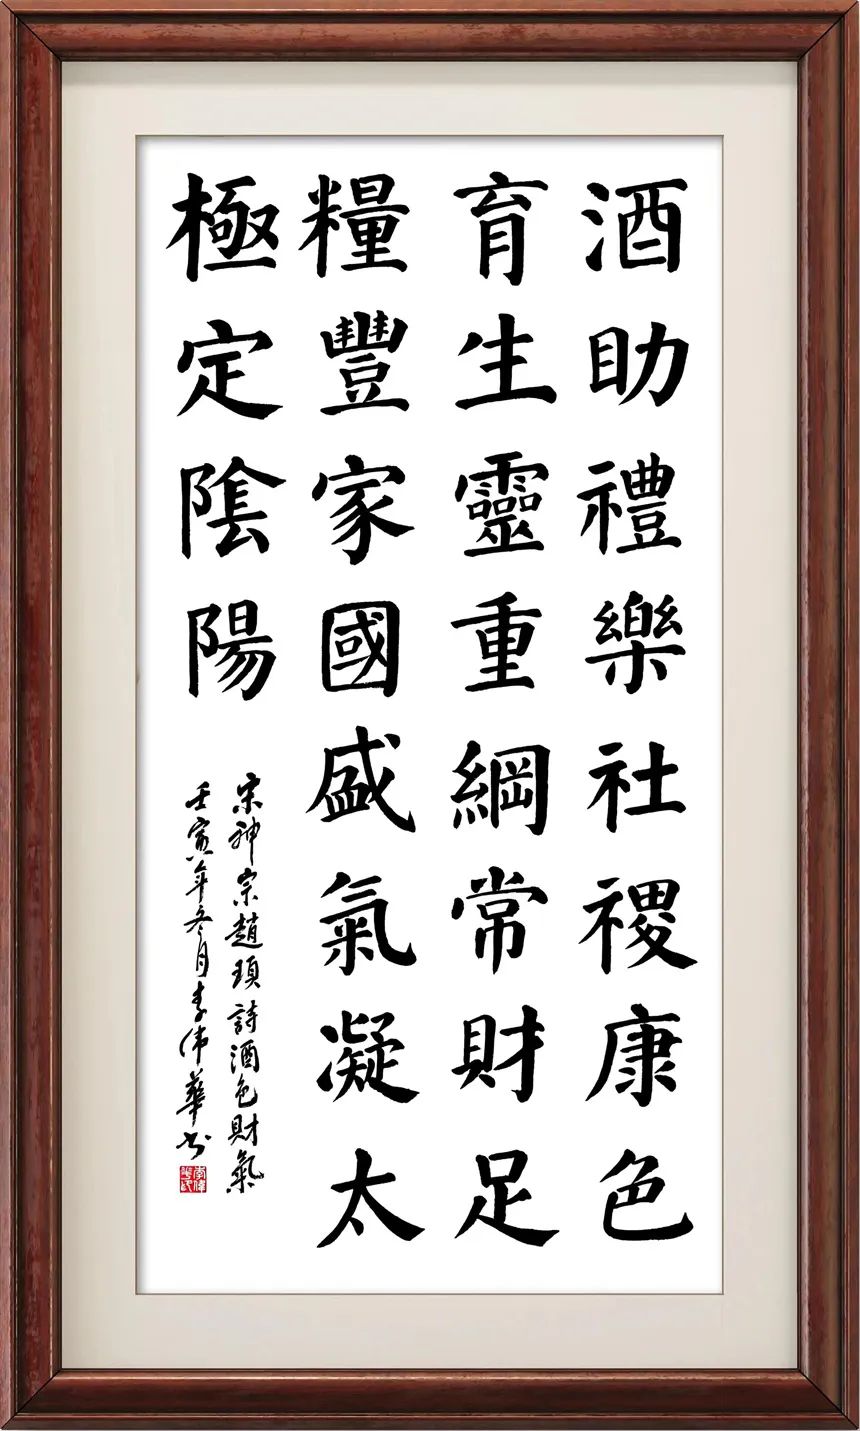 酒助禮樂社稷康色
育生靈重綱常財足
糧豐家國盛氣凝太
極定陰陽
宋神宗趙頊詩酒色財氣
壬寅年冬月李偉華书